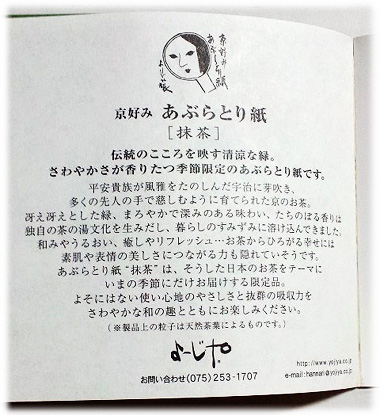 京好み
あぶらとり紙
よーじや
京好み あぶらとり紙
[抹茶]
伝統のこころを映す清涼な緑。
さわやかさが香りたつ季節限定のあぶらとり紙です。
平安貴族が風雅をたのしんだ宇治に芽吹き、
多くの先人の手で慈しむように育てられた京のお茶。
冴え冴えとした緑、まろやかで深みのある味わい、たちのぼる香りは
独自の茶の湯文化を生みだし、暮らしのすみずみに溶け込んできました。
和みやうるおい、癒しやリフレッシュ…お茶からひろがる幸せには
素肌や表情の美しさにつながる力も隠れていそうです。
あぶらとり紙“抹茶”は、そうした日本のお茶をテーマに
いまの季節にだけお届けする限定品。
よそにはない使い心地のやさしさと抜群の吸収力を
さわやかな和の趣とともにお楽しみください。
(※製品上の粒子は天然茶葉によるものです。)
よーじや
お問い合わせ(075)253-1707
http://www.yojiya.co.jp
e-mail:hannari@yojiya.co.jp